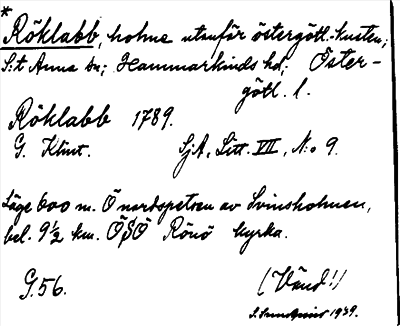 *
Röklabb, holme utanför östergötl. kusten;
S:t Anna sn; Hammarkinds hd; Öster-
götl. l.
Röklabb 1789.
G. Klint. SjA, Litt. VII, N:o 9.
Läge 600 m. Ö nordspetsen av Svinsholmen,
bel. 9½ km. ÖSÖ Rönö kyrka.
G.56. (Vänd!)
1939.